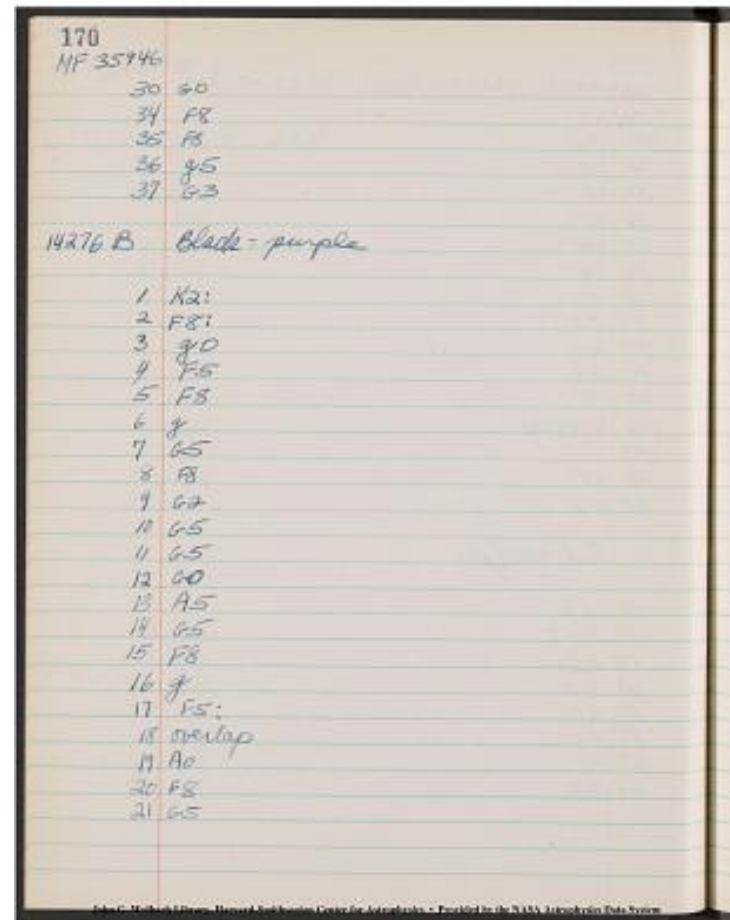 170
MF 35946
30 G0
34 F8
35 F8
36 g5
37 G3
14276 B Black - purple
1 K2:
2 F8:
3 g0
4 F5
5 F8
6 g
7 G5
8 F8
9 G2
10 G5
11 G5
12 G0
13 A5
14 G5
15 F8
16 g
17 F5:
18 overlap
19 A0
20 F8
21 G5
John G. Wolbach Library, Harvard-Smithsonian Center for Astrophysics • Provided by the NASA Astrophysics Data System